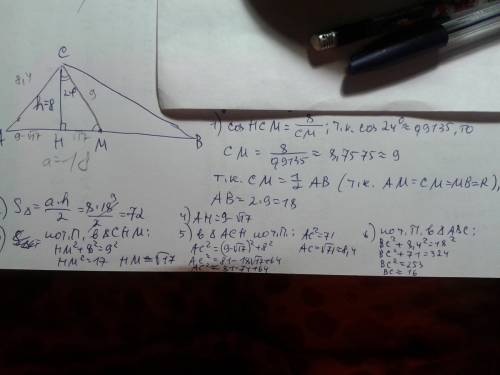 C
8,4
h=8
24°
9
A
9-√17
H
√17
M
B
a=18
1) cos HCM = 8/CM ; т.к. cos 24° ≈ 0,9135, то
CM = 8/0,9135 ≈ 8,7575 ≈ 9
т.к. CM = 1/2 AB (т.к. AM=CM=MB=R),
AB = 2·9 = 18
S△ = a·h/2 = 8·18/2 = 72
9
по т.П. в △CHM:
HM²+8²=9²
HM²=17 HM=√17
4) AH=9-√17
5) в △ACH по т.П.:
AC²=(9-√17)²+8²
AC²=81-18√17+17+64
AC²=71
AC=√71≈8,4
6) по т.П. в △ABC:
BC²+8,4²=18²
BC²+71=324
BC²=253
BC≈16